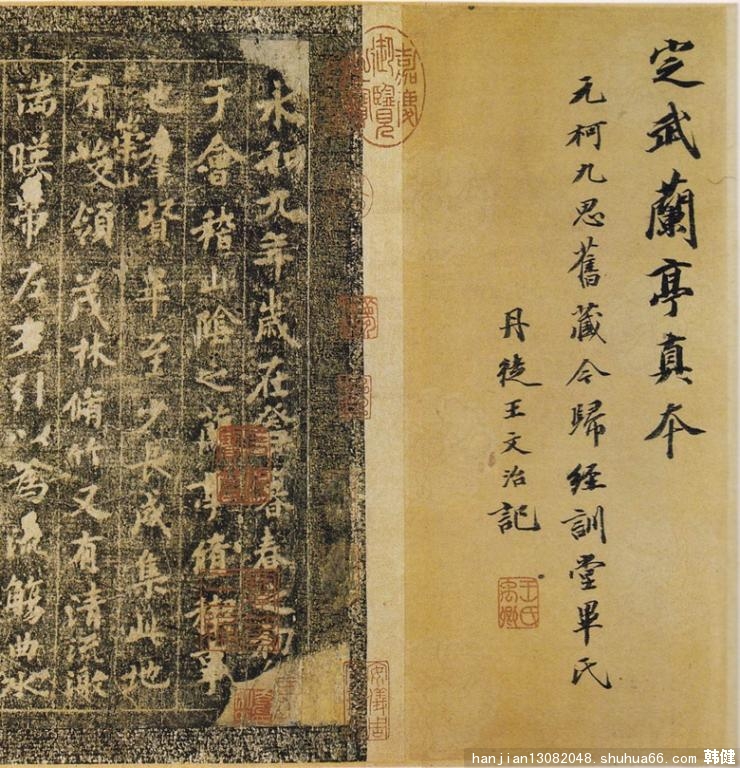 定武蘭亭真本
元柯九思舊藏今歸經訓堂畢氏
丹徒王文治記
王氏禹卿
嘉慶御覽
安儀周
永和九年歲在癸暮春之初
于會稽山陰之蘭亭脩禊事
也羣賢畢至少長咸集此地
崇山
有峻領茂林脩竹又有清流激
湍暎帶左右引以為流觴曲水
hanjian13082048.shuhua66.com 韩健